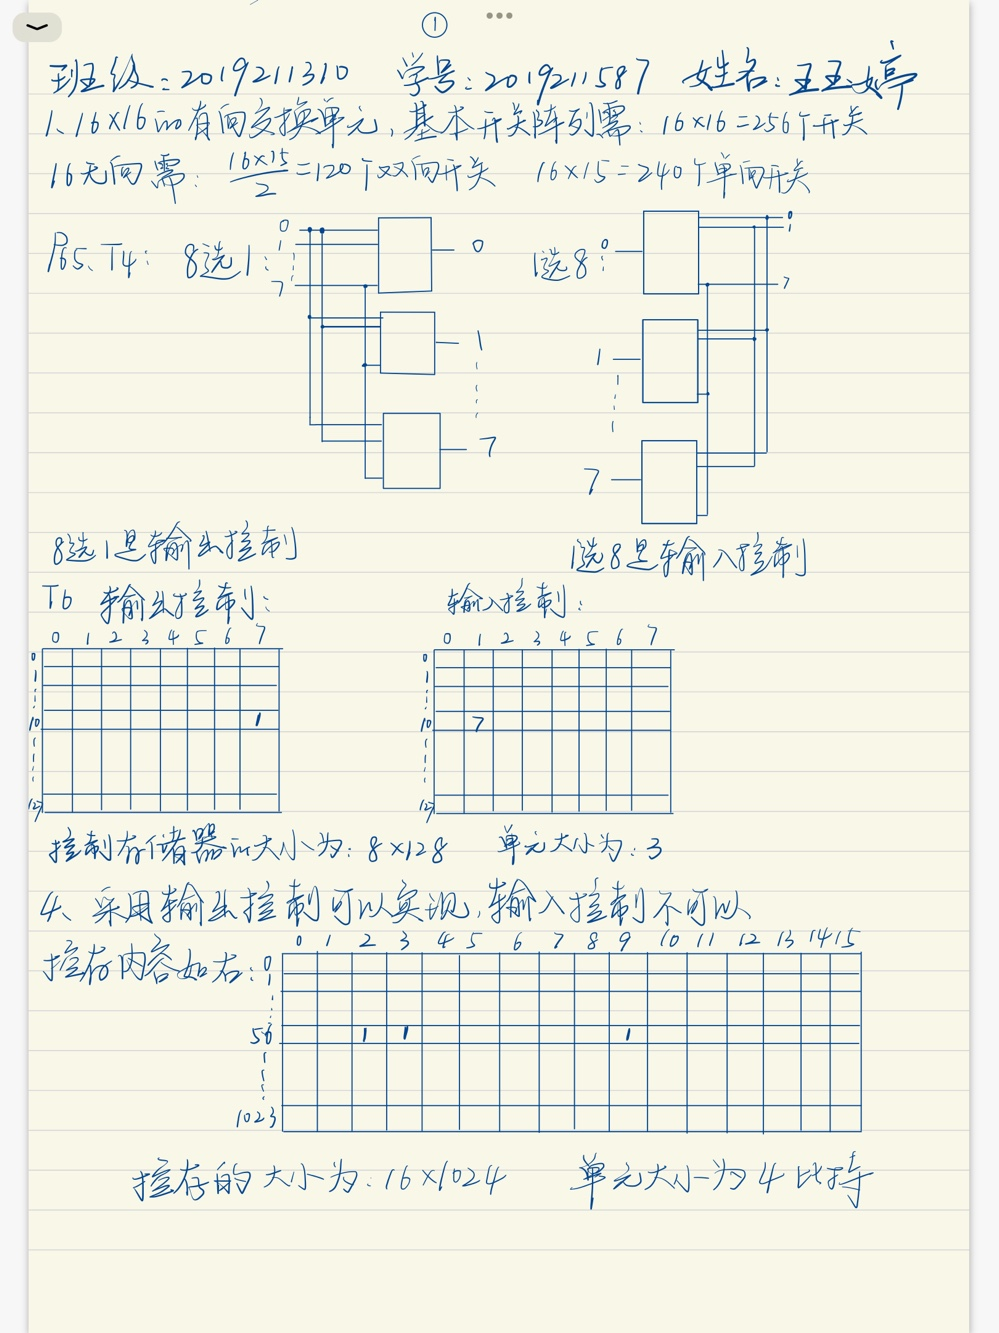 ①
班级：2019211310 学号：2019211587 姓名：王玉婷
1、16×16的有向交换单元，基本开关阵列需：16×16=256个开关
16无向需：16×15/2=120个双向开关 16×15=240个单向开关
P65、T4：8选1： 1选8：
0 1 7 0 1 7
0 1 7 0 1 7
8选1是输出控制 1选8是输入控制
T6 输出控制： 输入控制：
0 1 2 3 4 5 6 7 0 1 2 3 4 5 6 7
0 0
1 1
10 1 10 7
127 127
控制存储器的大小为：8×128 单元大小为：3
4、采用输出控制可以实现，输入控制不可以
0 1 2 3 4 5 6 7 8 9 10 11 12 13 14 15
控存内容如右：0
1
56 1 1 1
1023
控存的大小为：16×1024 单元大小为4比特